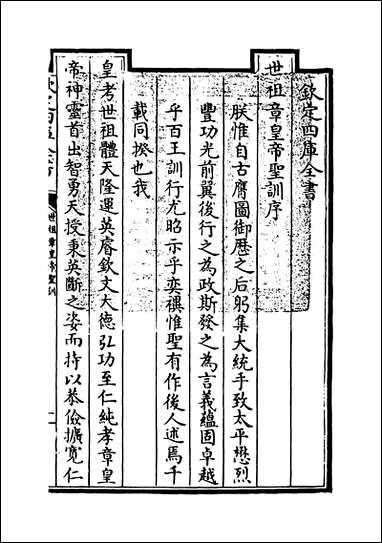 欽定四庫全書
世祖章皇帝聖訓序
朕惟自古膺圖御歷之后躬集大統手致太平懋烈
豐功光前翼後行之為政斯發之為言義蘊固卓越
乎百王訓行尤昭示乎奕禩惟聖有作後人述焉千
載同揆也我
皇考世祖體天隆運英睿欽文大德弘功至仁純孝章皇
帝神靈首出智勇天授秉英斷之姿而持以恭儉擴寬仁
欽定四庫全書
世祖章皇帝聖訓
一